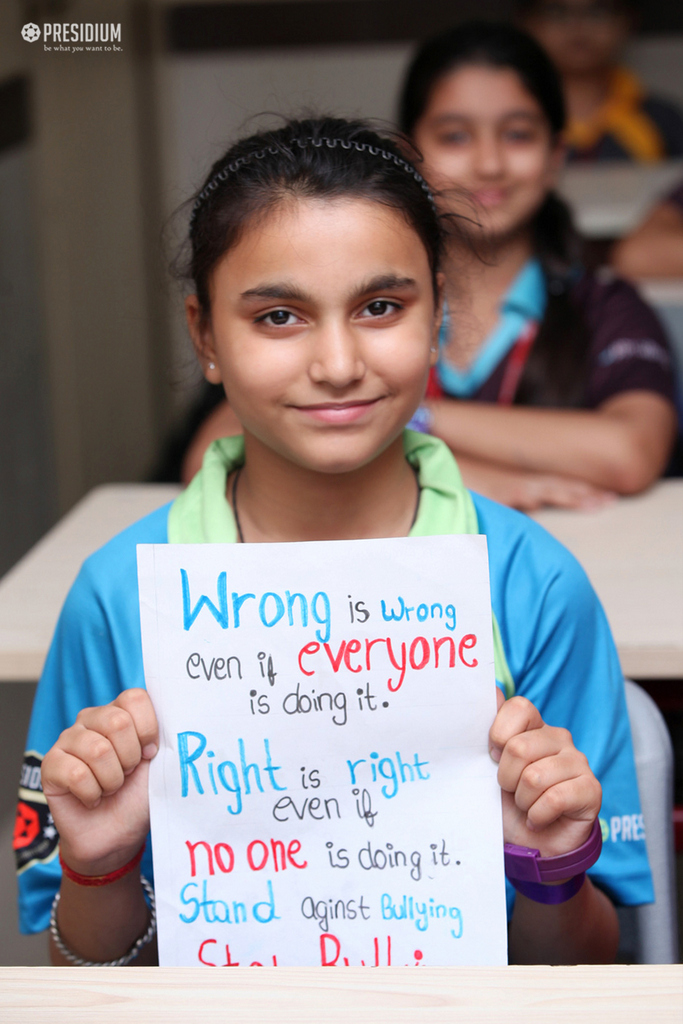 PRESIDIUM
be what you want to be.
Wrong is wrong
even if everyone
is doing it.
Right is right
even if
no one is doing it.
Stand aginst Bullying
PRES